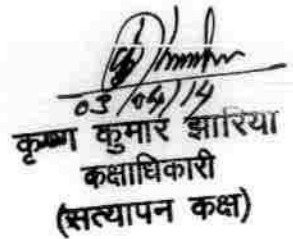 03/04/14
कृष्ण कुमार झारिया
कक्षाधिकारी
(सत्यापन कक्ष)